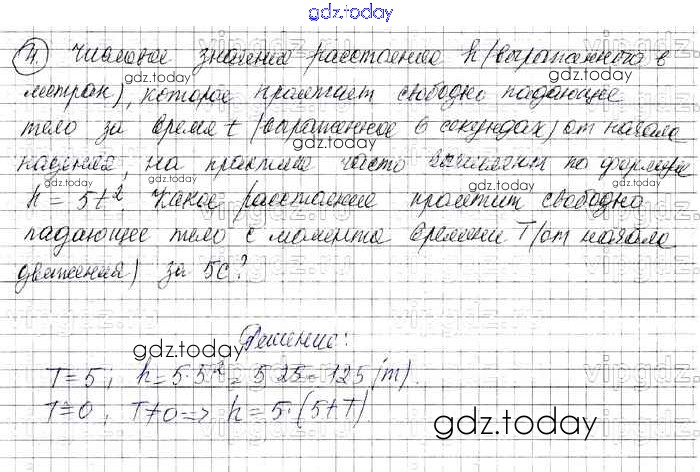 gdz.today
4. Числовое значение расстояния h (выраженного в
gdz.today
метрах), которое пролетает свободно падающее
тело за время t (выраженное в секундах) от начала
gdz.today
падения, на практике часто вычисляют по формуле
gdz.today gdz.today gdz.today
h = 5t². Какое расстояние пролетит свободно
падающее тело с момента времени T (от начала
gdz.today
движения) за 5с?
Решение:
gdz.today
T=5; h=5·5²=5·25=125 (m).
T=0; T≠0=> h=5·(5+T)
gdz.today